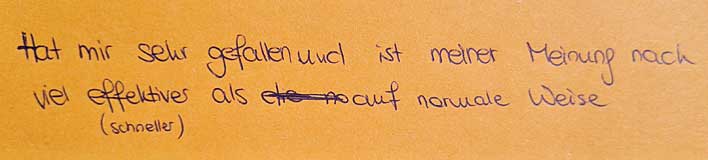 Hat mir sehr gefallen und ist meiner Meinung nach
viel effektiver als auf normale Weise
(schneller)